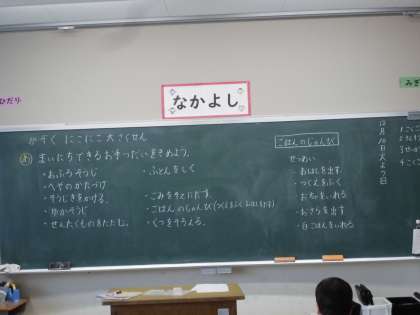 ひだり
なかよし
みぎ
かぞく にこにこ 大さくせん
め まいにちできるお手つだいをきめよう。
・おふろそうじ
・ふとんをしく
・へやのかたづけ
・そうじきをかける。
・ごみをすてにだす。
・ゆかそうじ
・ごはんのじゅんび(つくえをふく おはしを出す)
・せんたくものをたたむ。
・くつをそろえる。
ごはんのじゅんび
せつめい
・おはしを出す
・つくえをふく
・おちゃをいれる
・おさらを出す
・白ごはんをいれる
12月10日火よう日